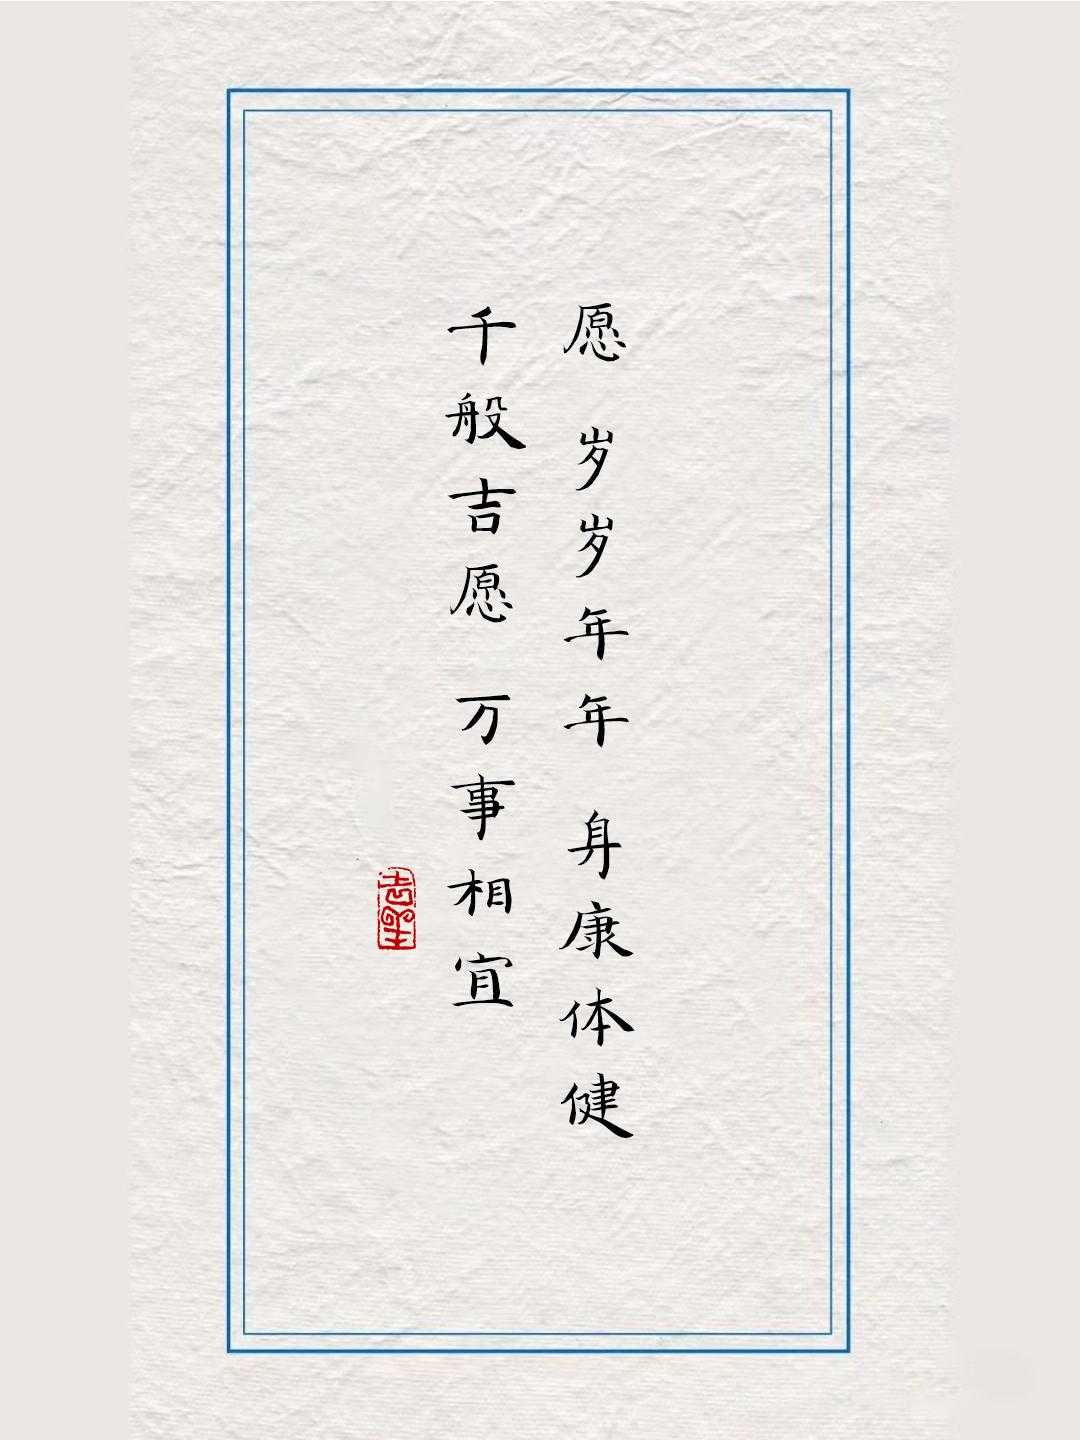 愿 岁岁年年 身康体健
千般吉愿 万事相宜